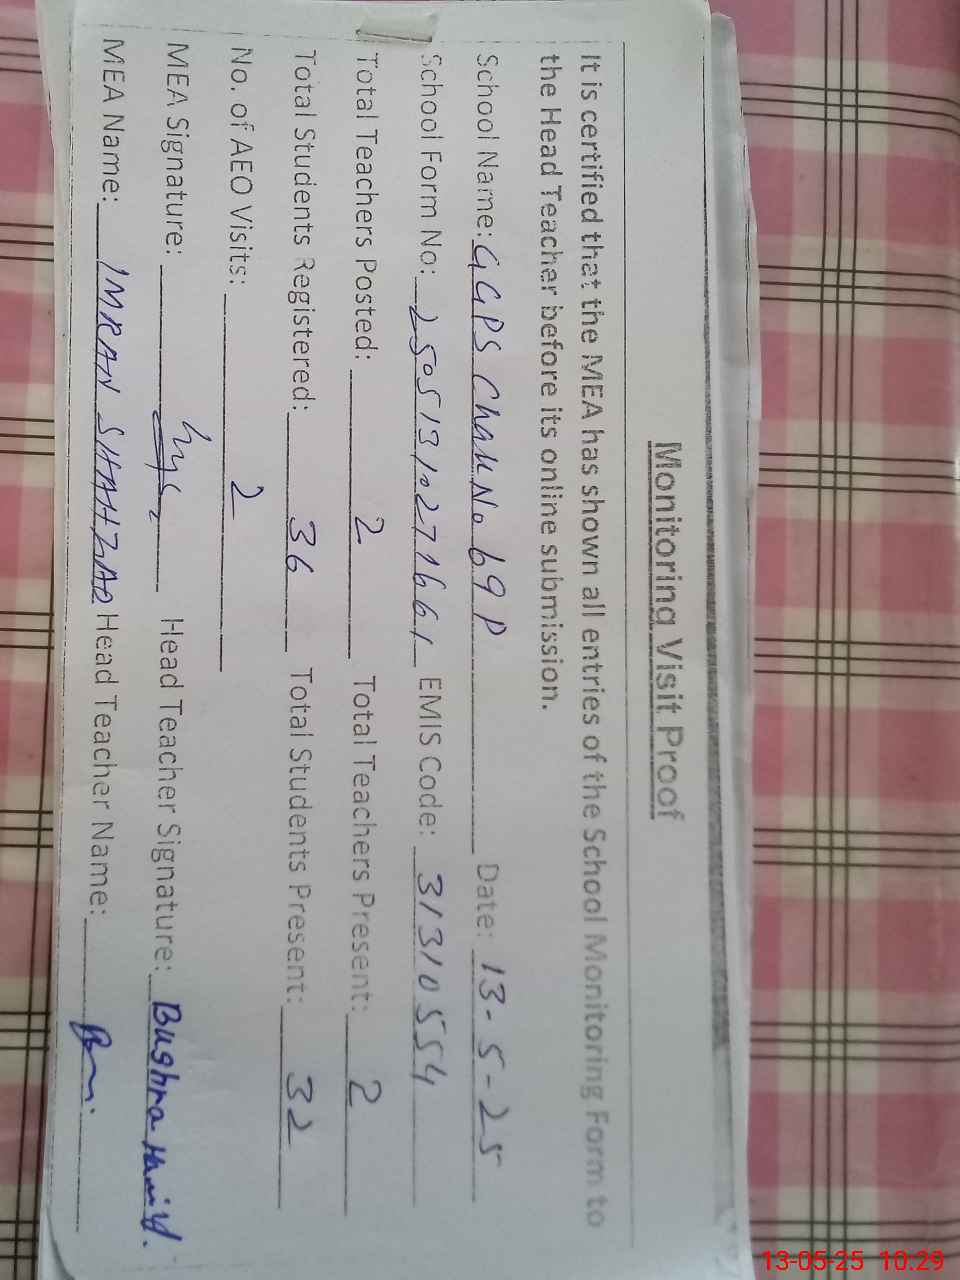 Monitoring Visit Proof
It is certified that the MEA has shown all entries of the School Monitoring Form to
the Head Teacher before its online submission.
School Name: GGPS Chak No 69 P Date: 13-5-25
School Form No: 25051310271661 EMIS Code: 31310554
Total Teachers Posted: 2 Total Teachers Present: 2
Total Students Registered: 36 Total Students Present: 32
No. of AEO Visits: 2
MEA Signature: Head Teacher Signature: Bushra Hamid.
MEA Name: IMRAN SHAHZAD Head Teacher Name:
13-05-25 10:29